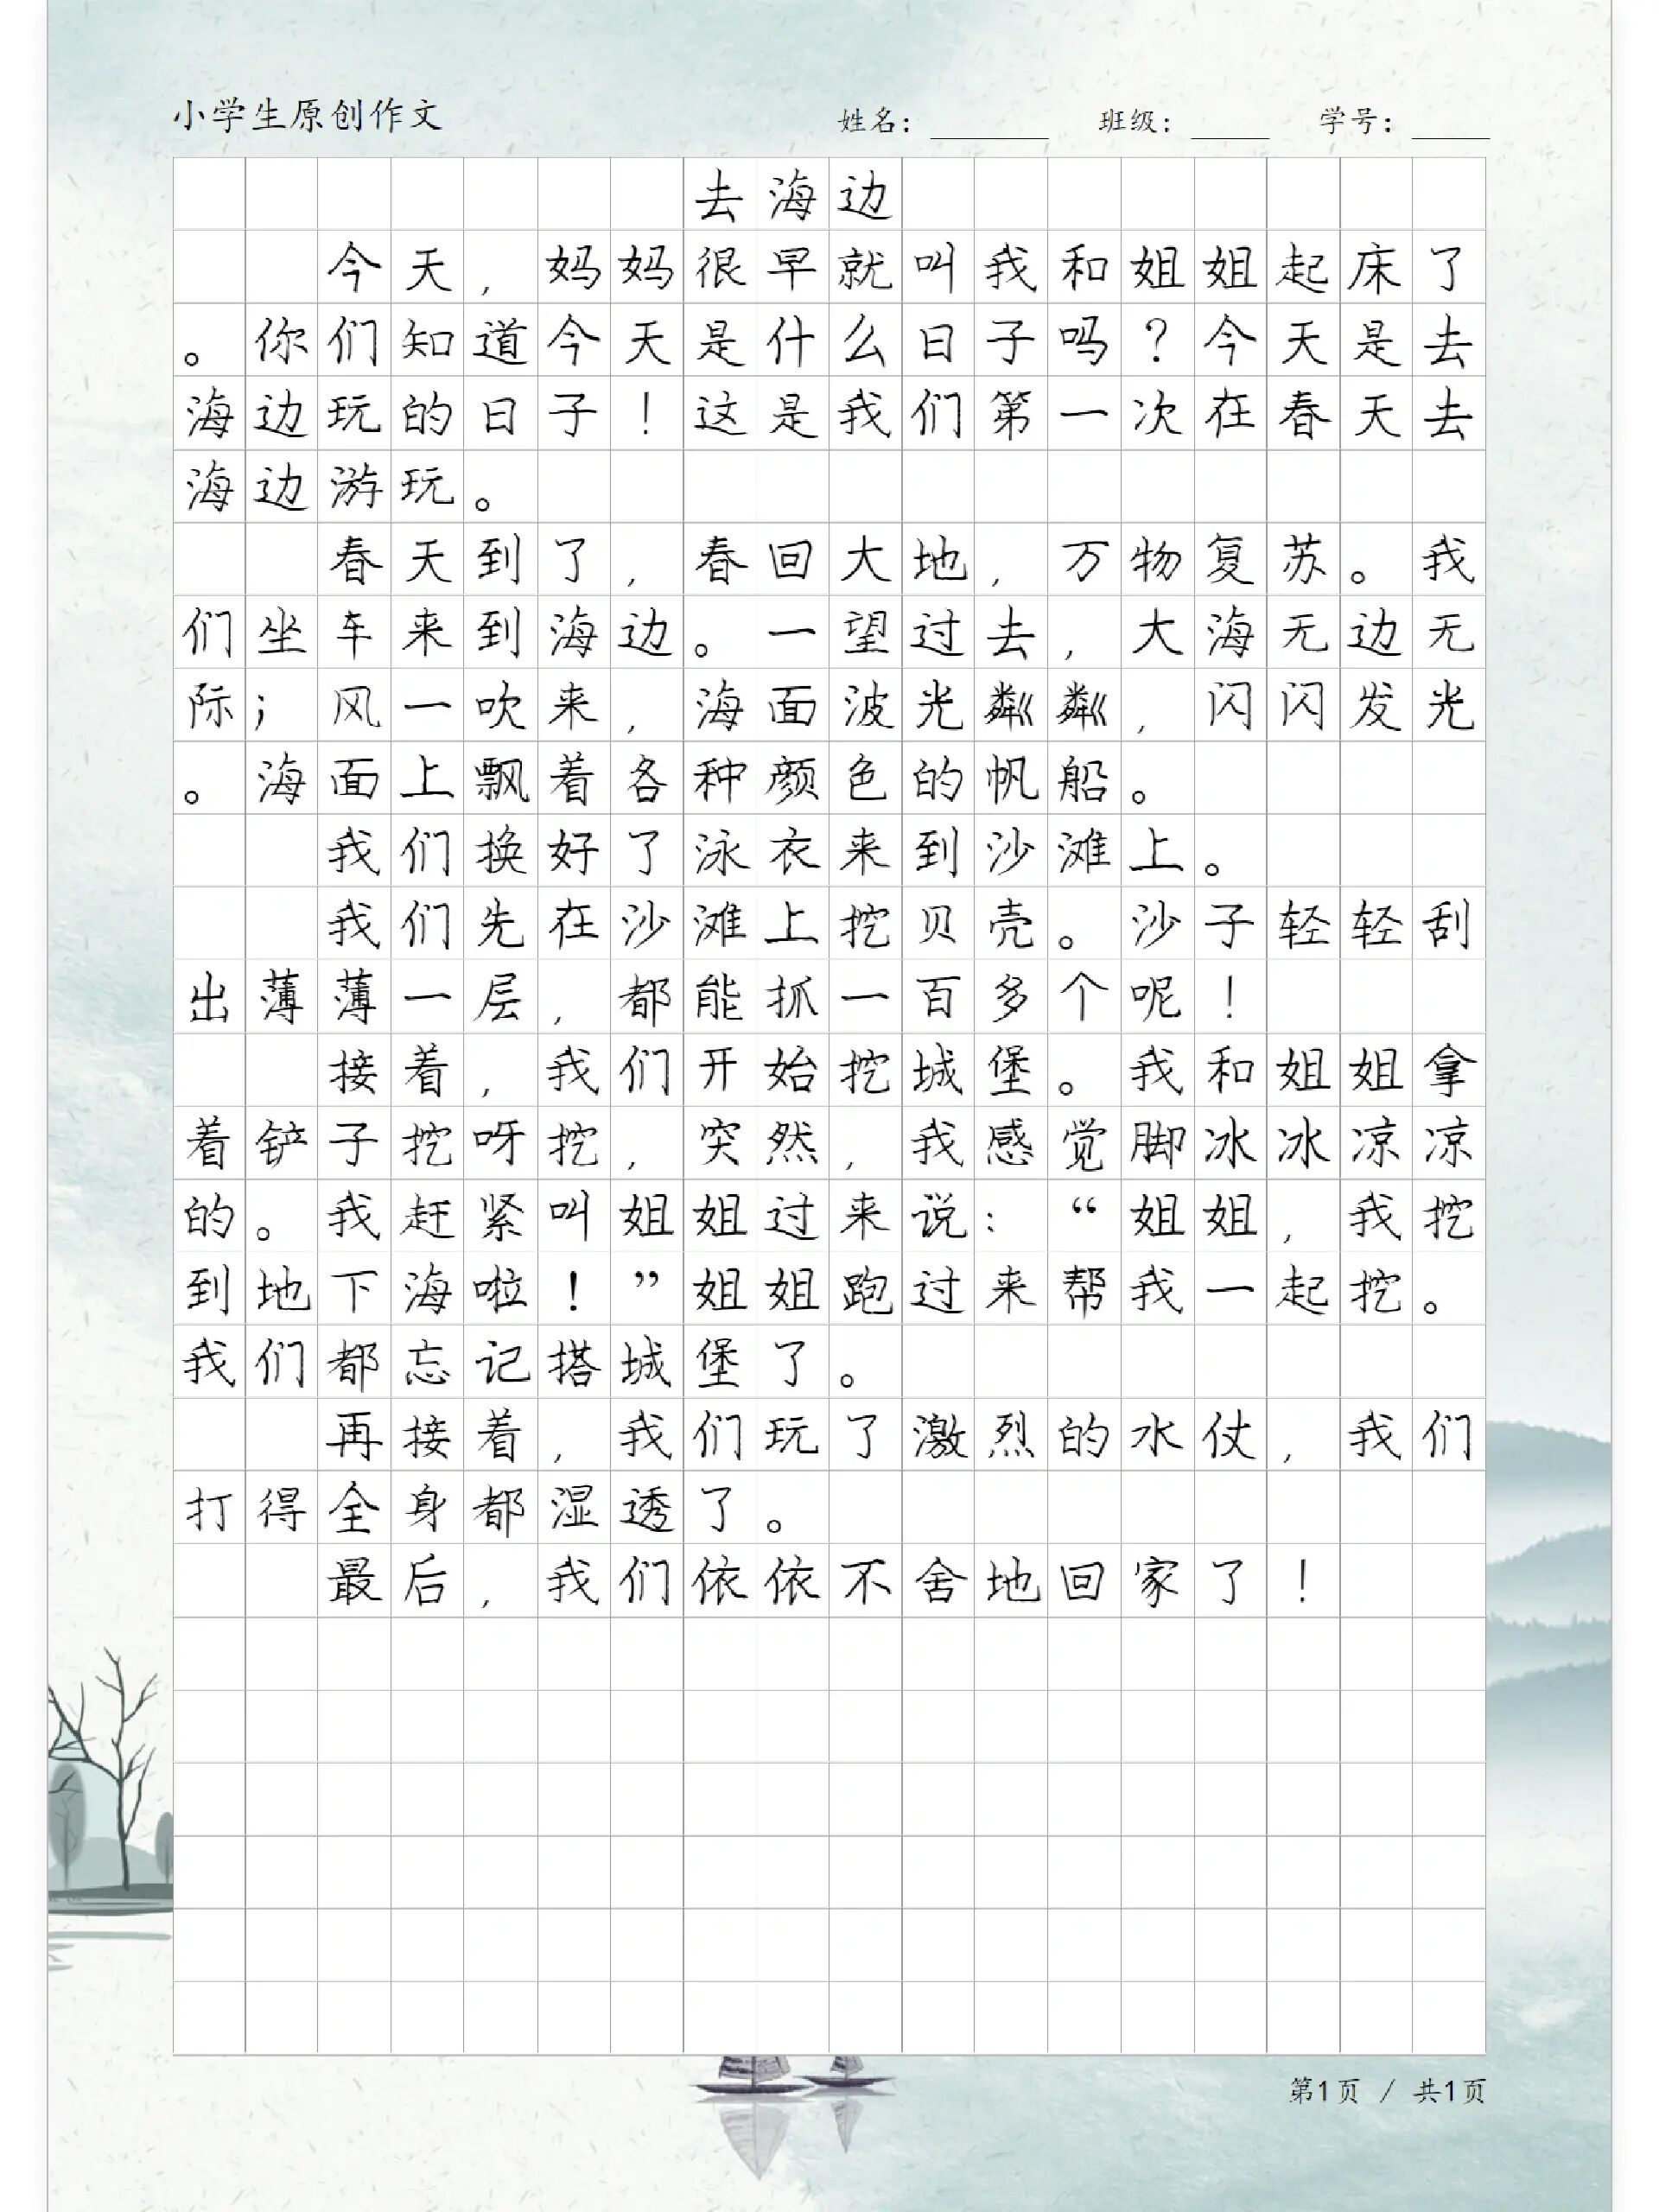 小学生原创作文 姓名：______ 班级：____ 学号：____
去海边
今天，妈妈很早就叫我和姐姐起床了
。你们知道今天是什么日子吗？今天是去
海边玩的日子！这是我们第一次在春天去
海边游玩。
春天到了，春回大地，万物复苏。我
们坐车来到海边。一望过去，大海无边无
际；风一吹来，海面波光粼粼，闪闪发光
。海面上飘着各种颜色的帆船。
我们换好了泳衣来到沙滩上。
我们先在沙滩上挖贝壳。沙子轻轻刮
出薄薄一层，都能抓一百多个呢！
接着，我们开始挖城堡。我和姐姐拿
着铲子挖呀挖，突然，我感觉脚冰冰凉凉
的。我赶紧叫姐姐过来说：“姐姐，我挖
到地下海啦！”姐姐跑过来帮我一起挖。
我们都忘记搭城堡了。
再接着，我们玩了激烈的水仗，我们
打得全身都湿透了。
最后，我们依依不舍地回家了！
第1页 / 共1页